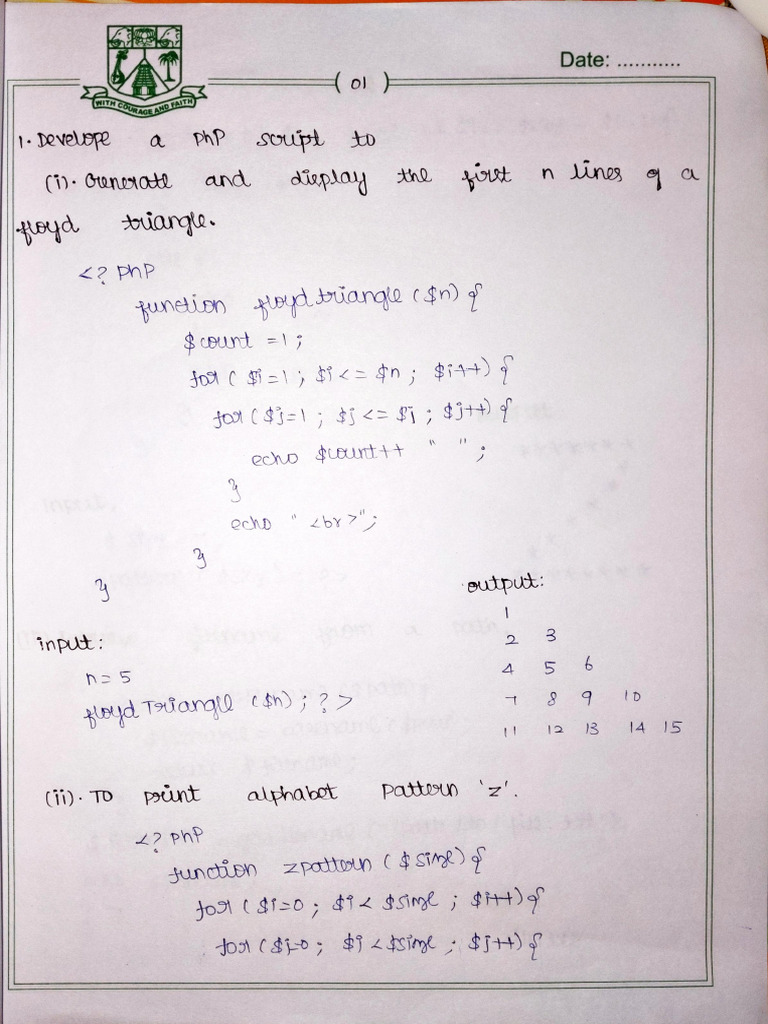 WITH COURAGE AND FAITH
Date: ...........
( 01 )
1. Develope a PhP script to
(i). Generate and display the first n lines of a
floyd triangle.
<? PhP
function floyd triangle ($n) {
$count = 1 ;
for ( $i=1 ; $i <= $n ; $i++) {
for ($j=1 ; $j <= $j ; $j++) {
echo $count++ " " ;
}
echo " <br>";
}
}
output:
1
2 3
4 5 6
7 8 9 10
11 12 13 14 15
input:
n = 5
floyd Triangle ($n) ; ? >
(ii). To print alphabet pattern 'z'.
<? PhP
function zpattern ( $size) {
for ( $i=0 ; $i < $size ; $i++) {
for ($j=0 ; $j < $size ; $j++) {